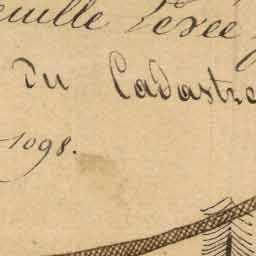 euille Levée
Du Cadastre
1098.